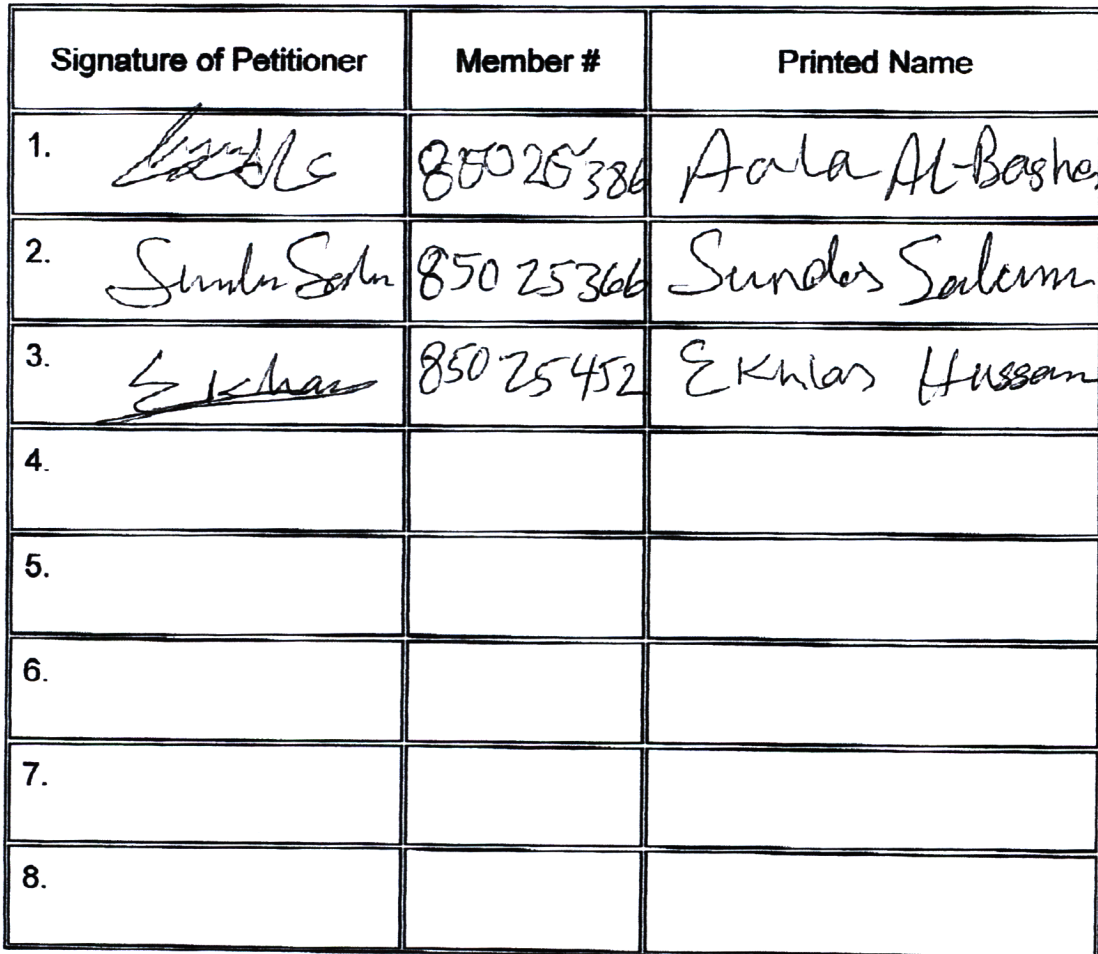 Signature of Petitioner Member # Printed Name
1. 85025386 Aala Al-Baghe
2. 85025366 Sundos Salum
3. Ekhlas 85025452 Ekhlas Hussan
4.
5.
6.
7.
8.